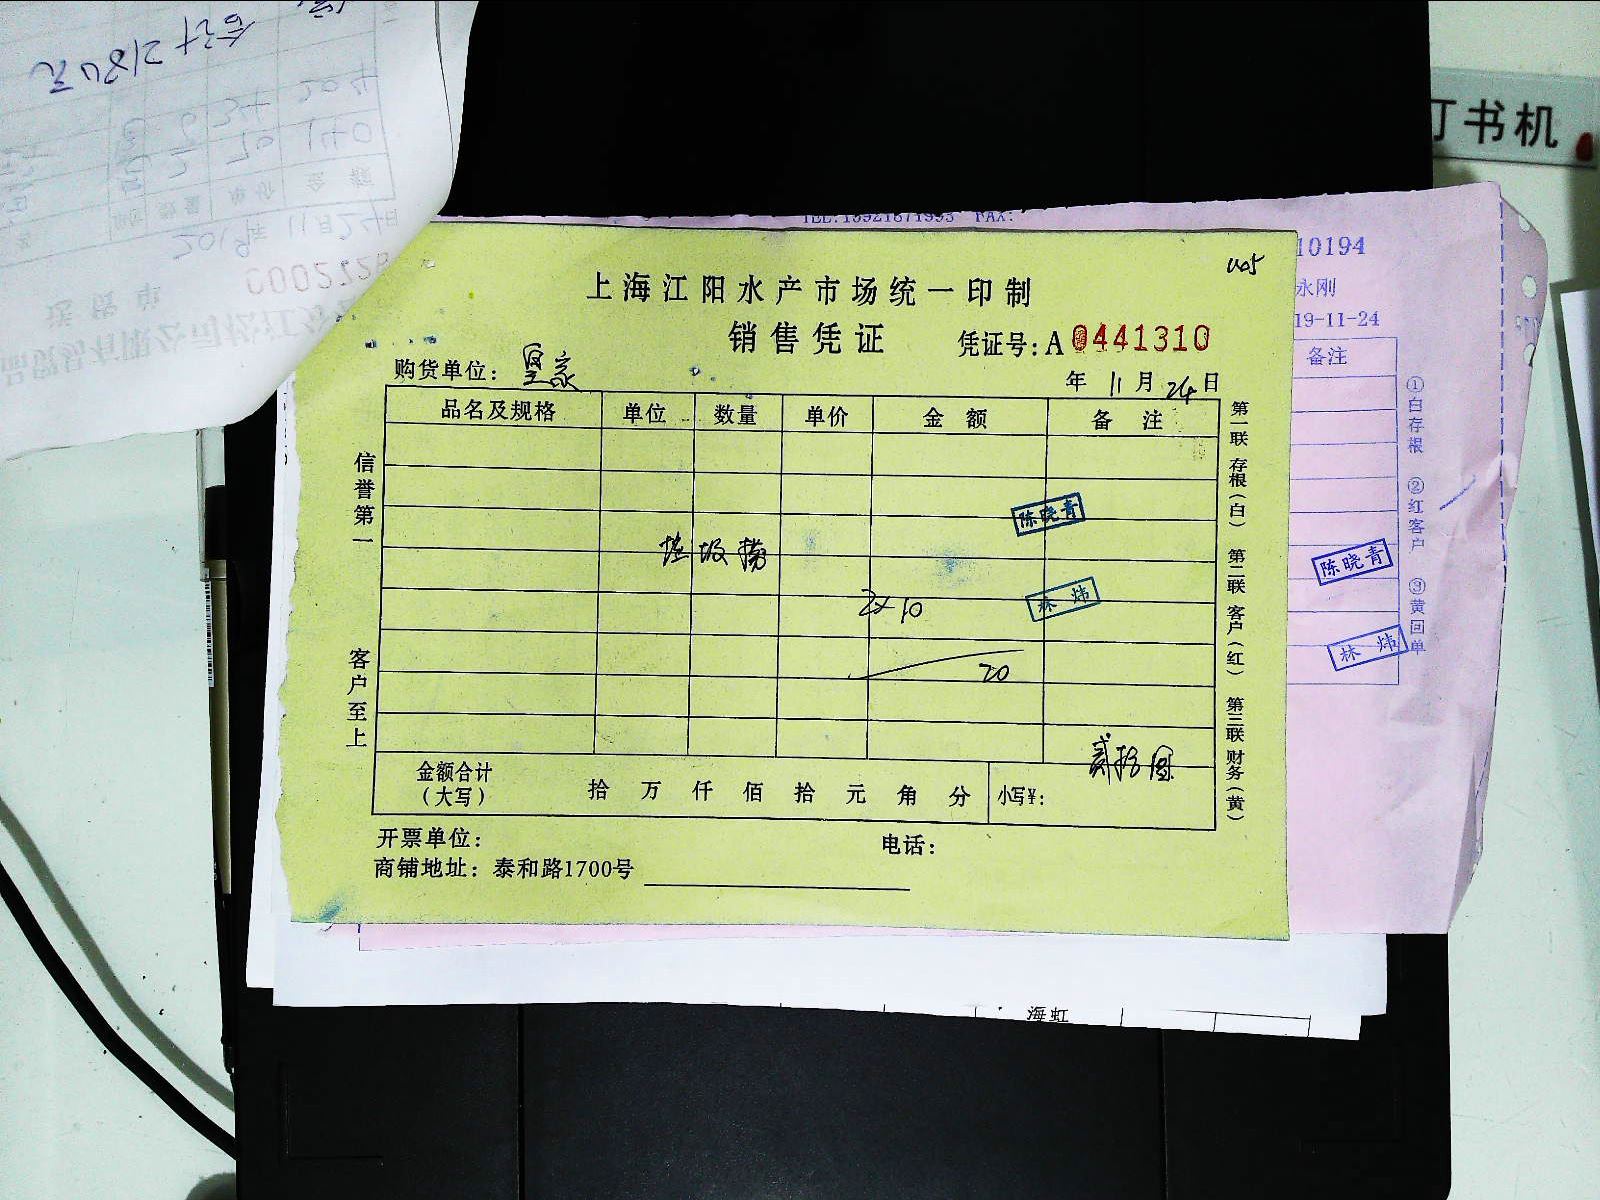 合计2184元
34 204
2 70 140
数量 单价 金额
2019年11月24日
0002726
送货单
订书机
TEL:13921871993 FAX:
10194
永刚
19-11-24
备注
①白存根 ②红客户 ③黄回单
陈晓青
林炜
405
上海江阳水产市场统一印制
销售凭证
凭证号:A 0441310
购货单位: 皇家
年 11 月 24 日
品名及规格 单位 数量 单价 金额 备注
信誉第一
客户至上
第一联 存根(白) 第二联 客户(红) 第三联 财务(黄)
陈晓青
垃圾捞
2×10
林炜
20
贰拾圆
金额合计(大写) 拾 万 仟 佰 拾 元 角 分 小写¥:
开票单位: 电话:
商铺地址: 泰和路1700号
海虹